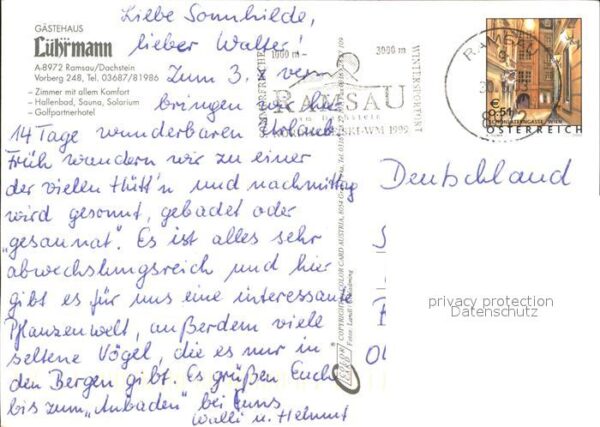 GÄSTEHAUS
Lührmann
A-8972 Ramsau/Dachstein
Vorberg 248, Tel. 03687/81986
– Zimmer mit allem Komfort
– Hallenbad, Sauna, Solarium
– Golfpartnerhotel
Liebe Sonnhilde,
lieber Walter!
Zum 3. x ver-
bringen wir hier
14 Tage wunderbaren Urlaub.
Früh wandern wir zu einer
der vielen Hütt'n und nachmittag
wird gesonnt, gebadet oder
„gesaunat". Es ist alles sehr
abwechslungsreich und hier
gibt es für uns eine interessante
Pflanzenwelt, außerdem viele
seltene Vögel, die es nur in
den Bergen gibt. Es grüßen Euch
bis zum „Anbaden" bei uns
Walli u. Helmut
1000 m – 3000 m
RAMSAU
am Dachstein
SKI-WM 1999
WINTERSPORTORT
RAMSAU
€ 0.51
WIEN
ÖSTERREICH
Deutschland
COPYRIGHT COLOR CARD AUSTRIA, 8054 Graz
privacy protection
Datenschutz